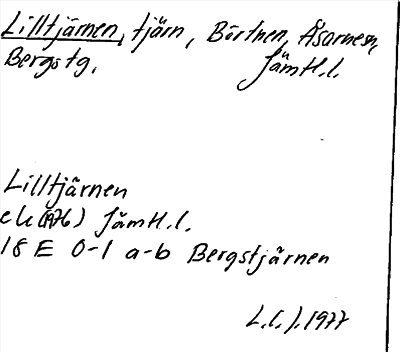 Lilltjärnen, tjärn, Börtnen, Åsarnes sn,
Bergs tg. Jämtl.l.
Lilltjärnen
ek (1976) Jämtl.l.
18 E 0-1 a-b Bergstjärnen
1977